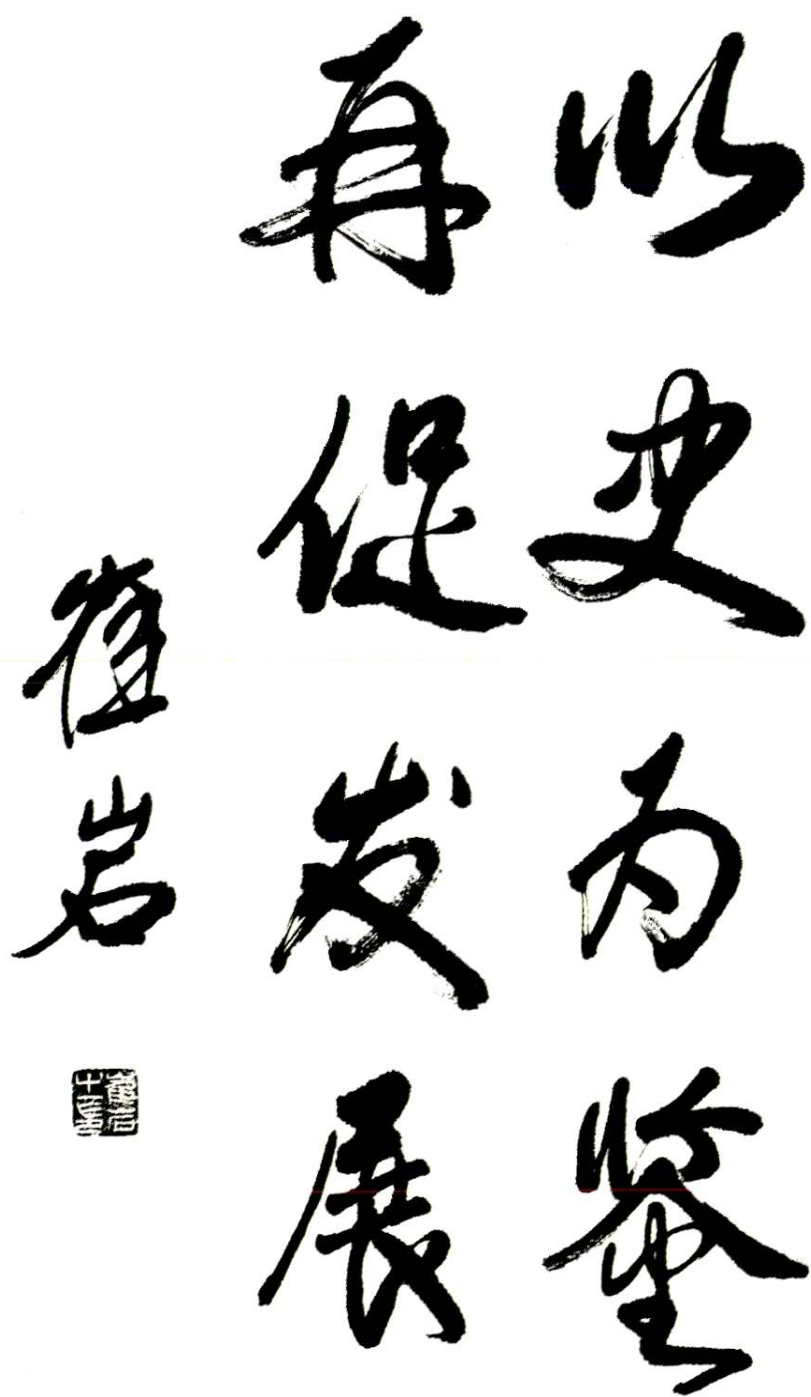 以史为鉴
再促发展
崔岩